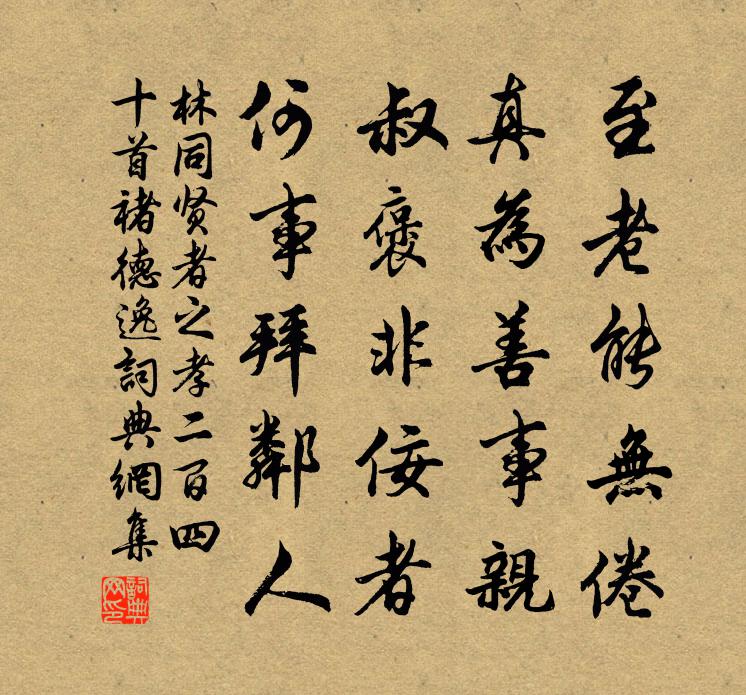 至老能無倦
真為善事親
叔褒非佞者
何事拜鄰人
林同賢者之孝二百四
十首褚德逸詞典網集
詞典
网印